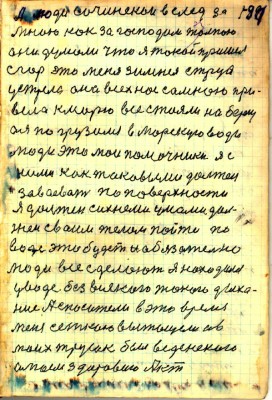 А люди сочинской вслед за 199
мною как за господом толпою
они думали что я такой пришел
с гор это меня зимняя струя
она всех нас со мною при-
вела к морю все стояли на берегу
а я погрузился в морскую воду
люди это мои помочники я с
ними как таковыми должен
завоевать по поверхности
я должен с ихнеми умами дол-
жен своим телом пойти по
воде это будет обязательно
люди все сделают я находился
у воде без всякого такого дыха-
ние А спосители в это время
меня сеткою вытащили с в
моих трусах был веденского
здоровью Акт